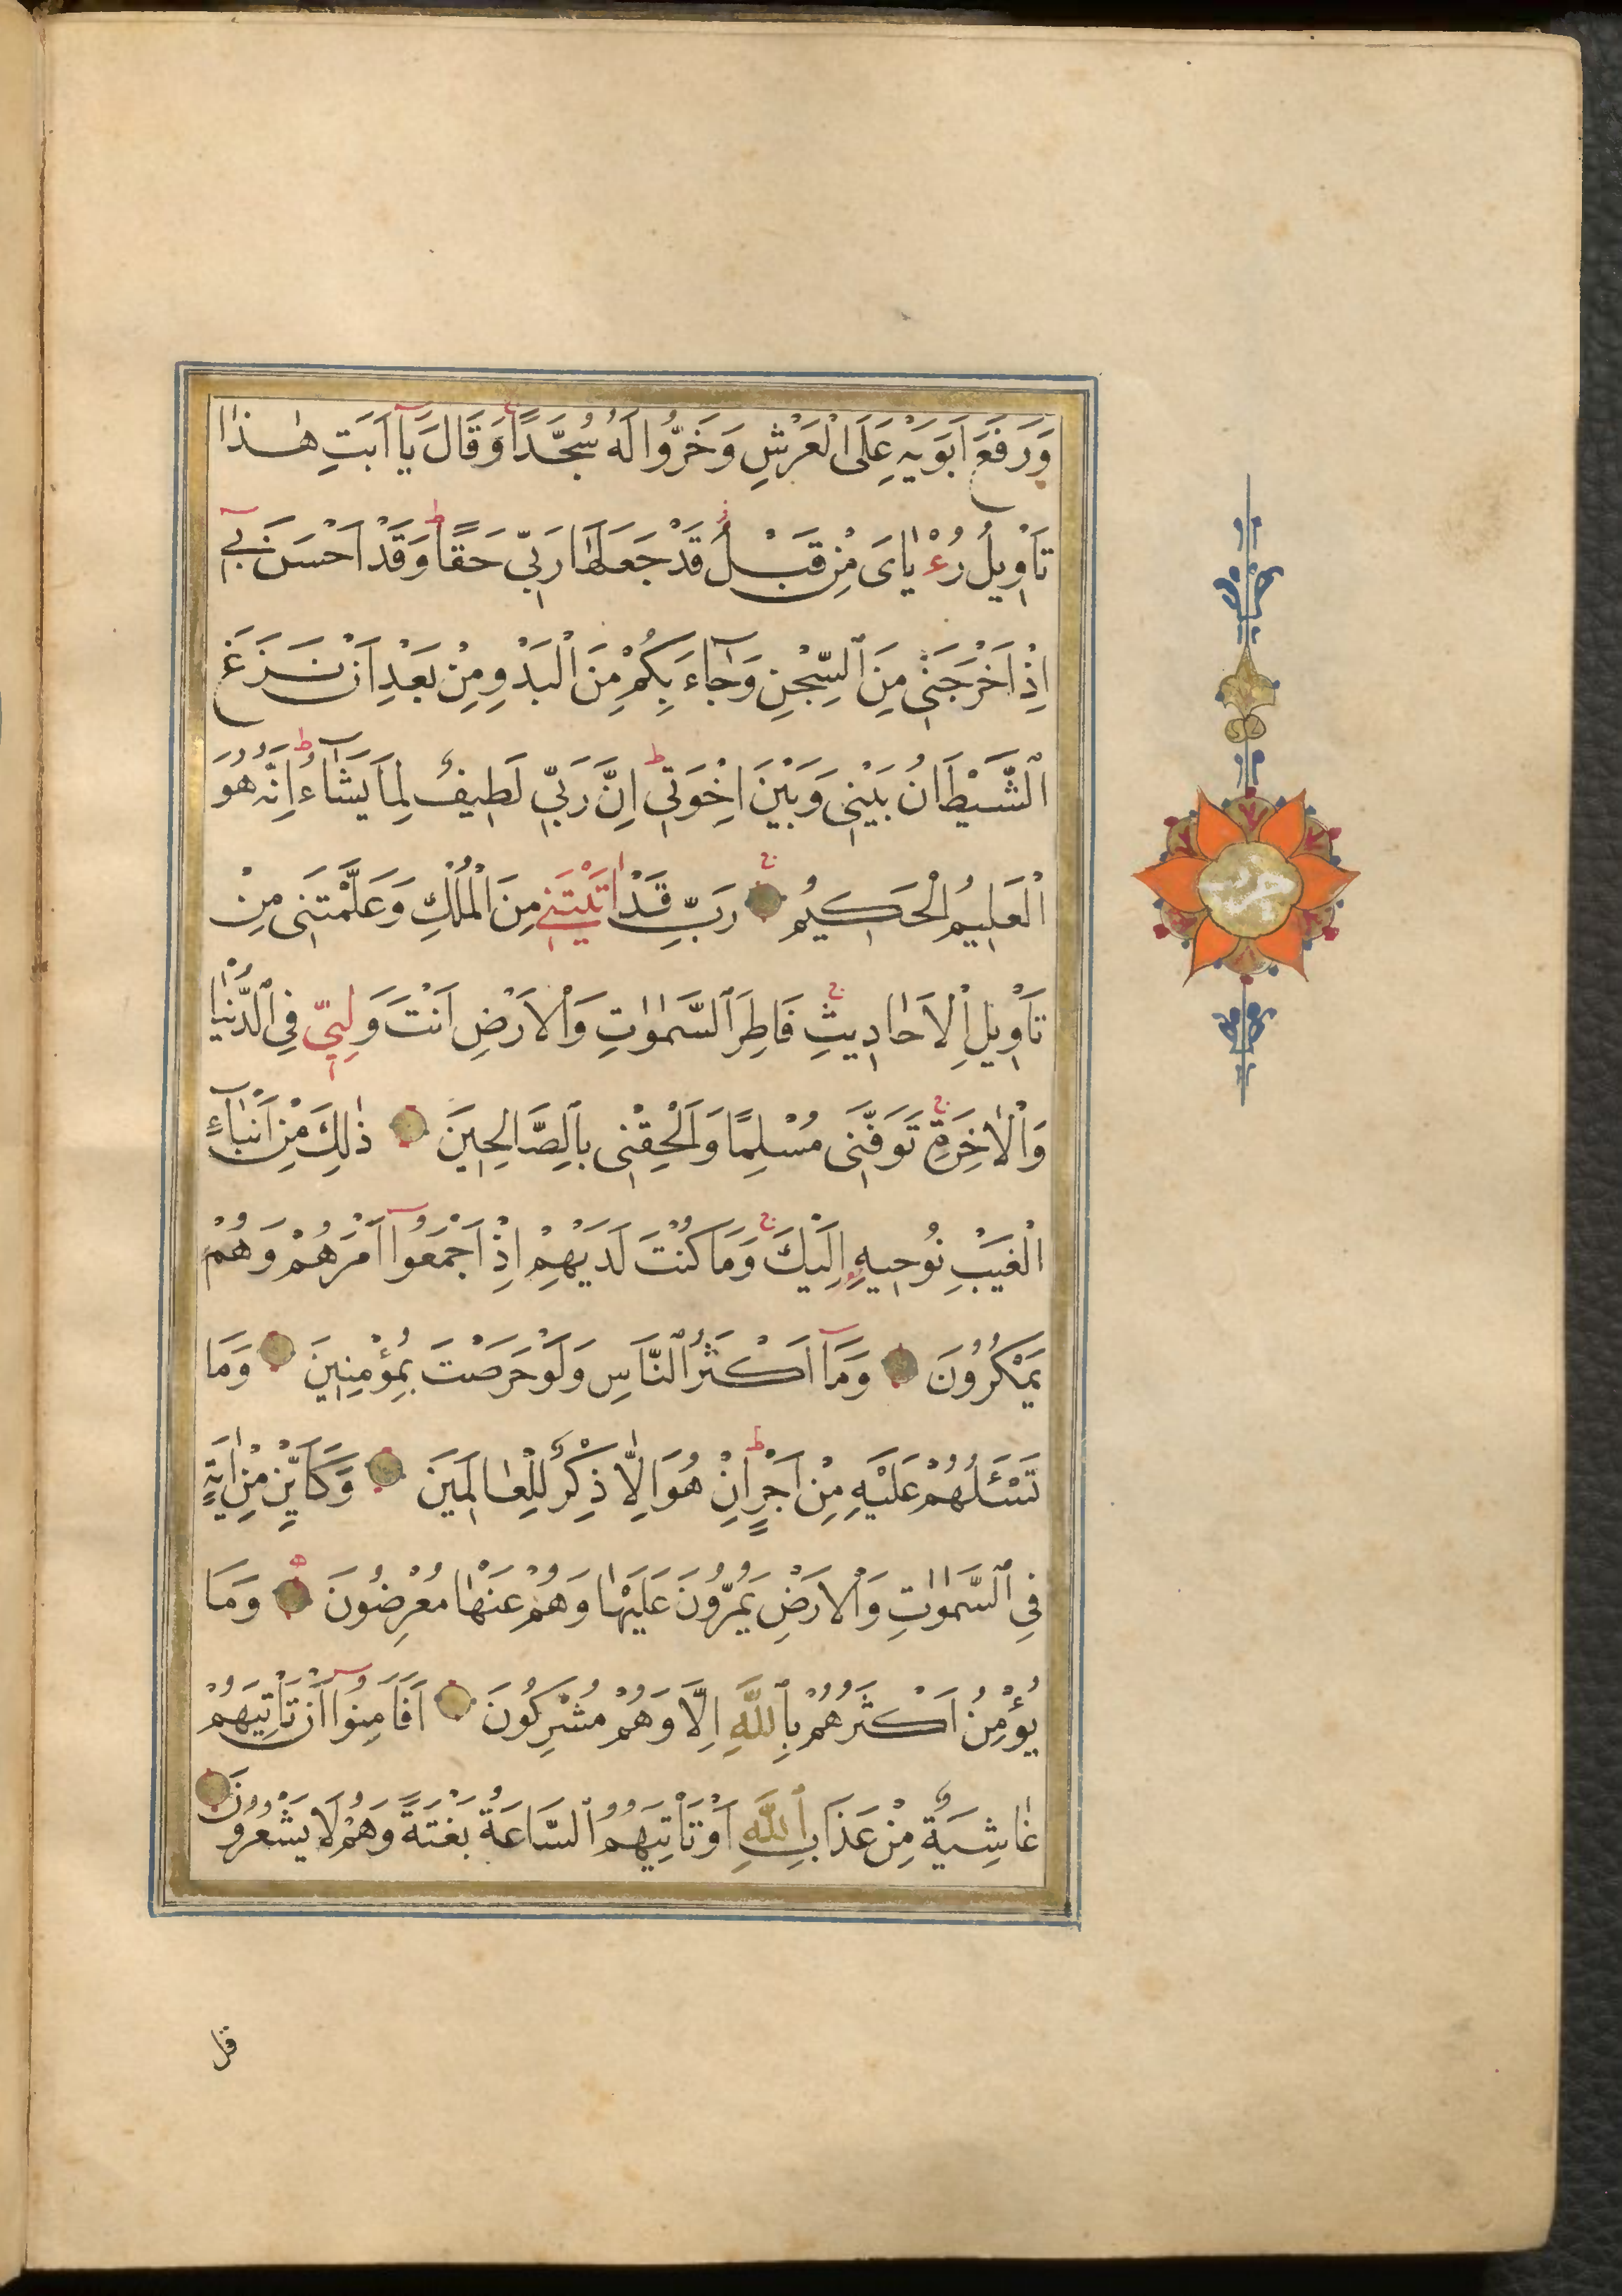 وَرَفَعَ اَبَوَيْهِ عَلَى الْعَرْشِ وَخَرُّوا لَهُ سُجَّدًا وَقَالَ يَآ اَبَتِ هٰذَا
تَاْوِيلُ رُءْيَاىَ مِنْ قَبْلُ قَدْ جَعَلَهَا رَبِّى حَقًّا وَقَدْ اَحْسَنَ بِى
اِذْ اَخْرَجَنِى مِنَ السِّجْنِ وَجَآءَ بِكُمْ مِنَ الْبَدْوِ مِنْ بَعْدِ اَنْ نَزَغَ
الشَّيْطَانُ بَيْنِى وَبَيْنَ اِخْوَتِى اِنَّ رَبِّى لَطِيفٌ لِمَا يَشَآءُ اِنَّهُ هُوَ
الْعَلِيمُ الْحَكِيمُ رَبِّ قَدْ اٰتَيْتَنِى مِنَ الْمُلْكِ وَعَلَّمْتَنِى مِنْ
تَاْوِيلِ الْاَحَادِيثِ فَاطِرَ السَّمٰوَاتِ وَالْاَرْضِ اَنْتَ وَلِيِّ فِى الدُّنْيَا
وَالْاٰخِرَةِ تَوَفَّنِى مُسْلِمًا وَاَلْحِقْنِى بِالصَّالِحِينَ ذٰلِكَ مِنْ اَنْبَآءِ
الْغَيْبِ نُوحِيهِ اِلَيْكَ وَمَا كُنْتَ لَدَيْهِمْ اِذْ اَجْمَعُوآ اَمْرَهُمْ وَهُمْ
يَمْكُرُونَ وَمَآ اَكْثَرُ النَّاسِ وَلَوْ حَرَصْتَ بِمُؤْمِنِينَ وَمَا
تَسْـَٔلُهُمْ عَلَيْهِ مِنْ اَجْرٍ اِنْ هُوَ اِلَّا ذِكْرٌ لِلْعَالَمِينَ وَكَاَيِّنْ مِنْ اٰيَةٍ
فِى السَّمٰوَاتِ وَالْاَرْضِ يَمُرُّونَ عَلَيْهَا وَهُمْ عَنْهَا مُعْرِضُونَ وَمَا
يُؤْمِنُ اَكْثَرُهُمْ بِاللّٰهِ اِلَّا وَهُمْ مُشْرِكُونَ اَفَاَمِنُوآ اَنْ تَاْتِيَهُمْ
غَاشِيَةٌ مِنْ عَذَابِ اللّٰهِ اَوْ تَاْتِيَهُمُ السَّاعَةُ بَغْتَةً وَهُمْ لَا يَشْعُرُونَ
قل